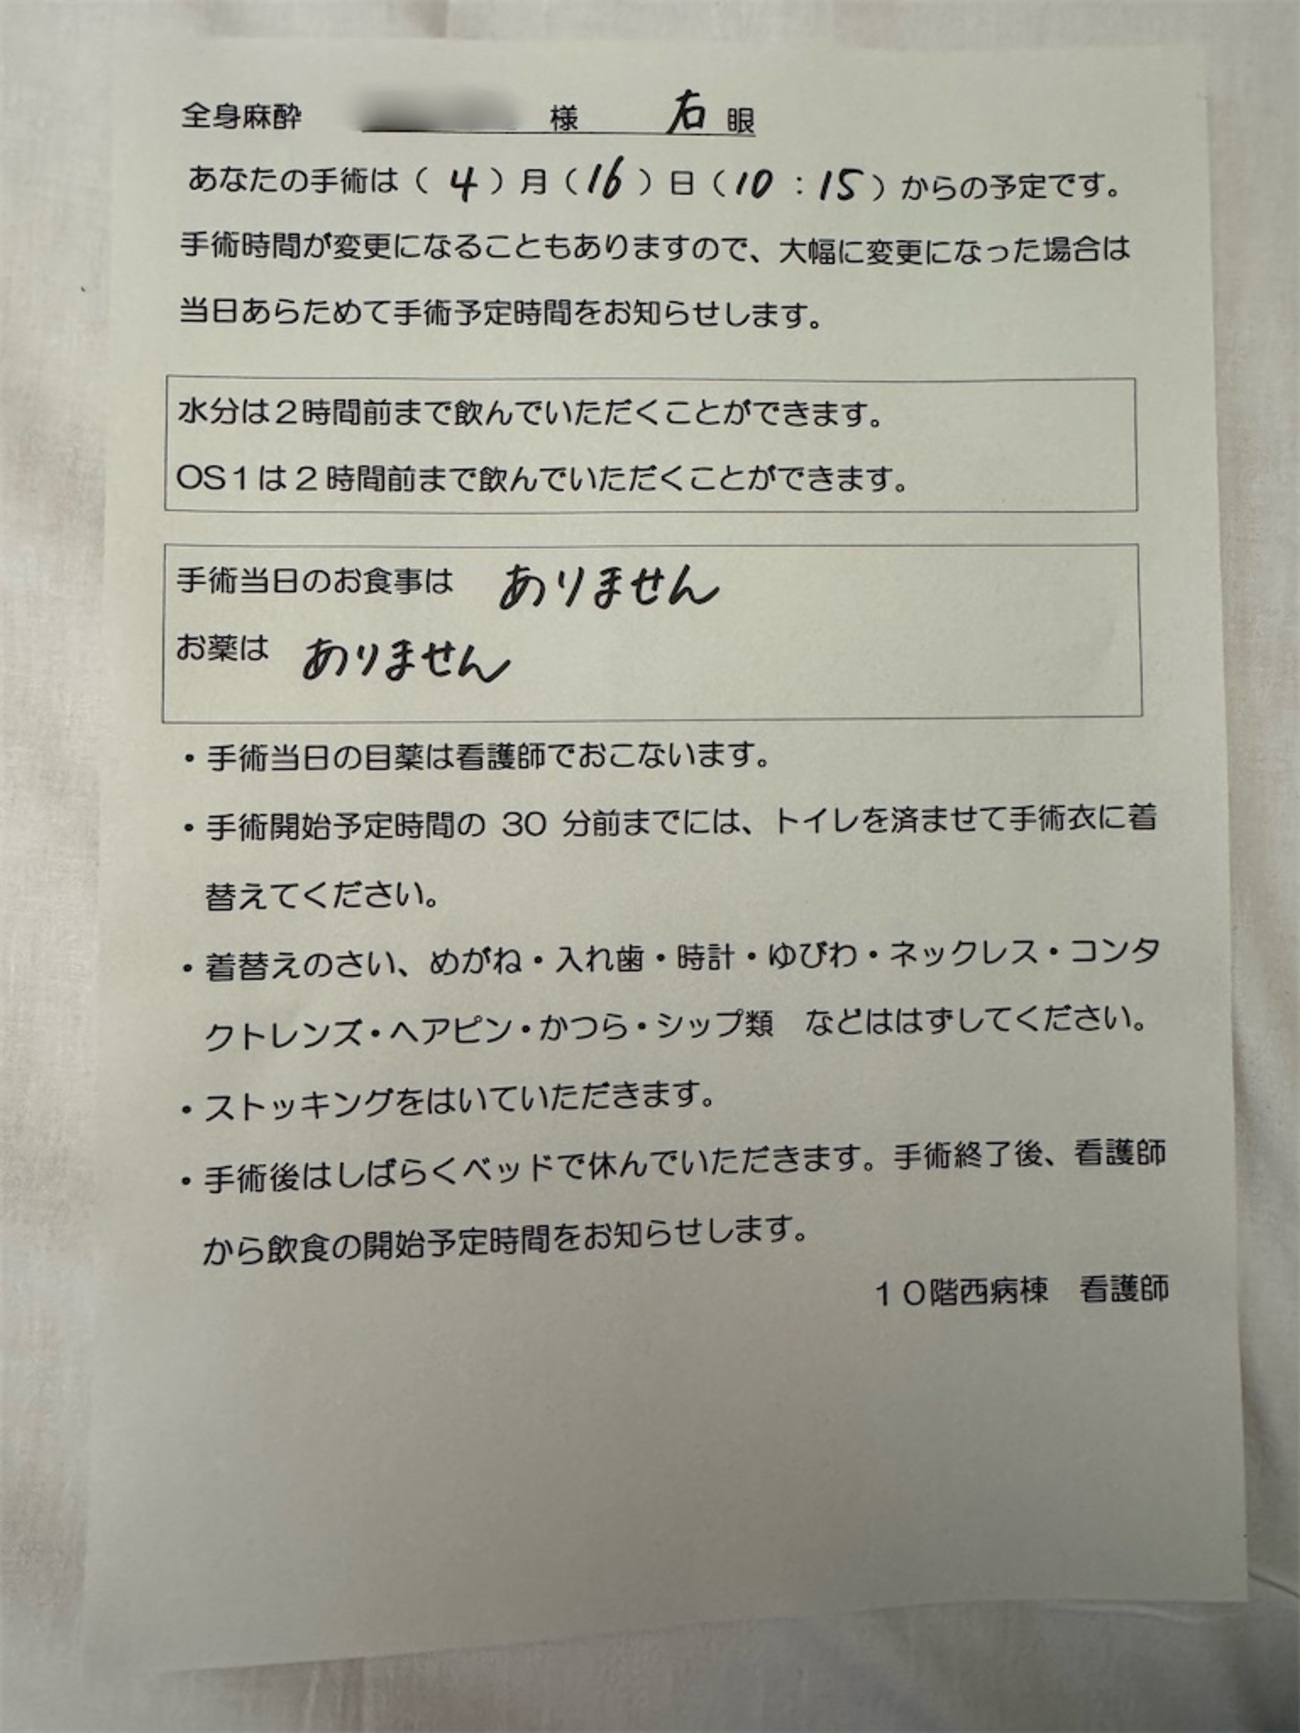 全身麻酔 様 右眼
あなたの手術は（4）月（16）日（10：15）からの予定です。
手術時間が変更になることもありますので、大幅に変更になった場合は
当日あらためて手術予定時間をお知らせします。
水分は２時間前まで飲んでいただくことができます。
OS１は２時間前まで飲んでいただくことができます。
手術当日のお食事は ありません
お薬は ありません
・手術当日の目薬は看護師でおこないます。
・手術開始予定時間の 30 分前までには、トイレを済ませて手術衣に着
替えてください。
・着替えのさい、めがね・入れ歯・時計・ゆびわ・ネックレス・コンタ
クトレンズ・ヘアピン・かつら・シップ類　などははずしてください。
・ストッキングをはいていただきます。
・手術後はしばらくベッドで休んでいただきます。手術終了後、看護師
から飲食の開始予定時間をお知らせします。
１０階西病棟　看護師